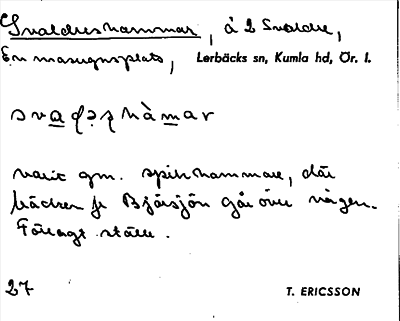 Svaldreshammar, å 2 Svaldre,
En masugnsplats, Lerbäcks sn, Kumla hd, Ör. l.
varit gm. spikhammare, där
bäcken fr Björsjön går över vägen.
Föregt. ställe.
27 T. ERICSSON